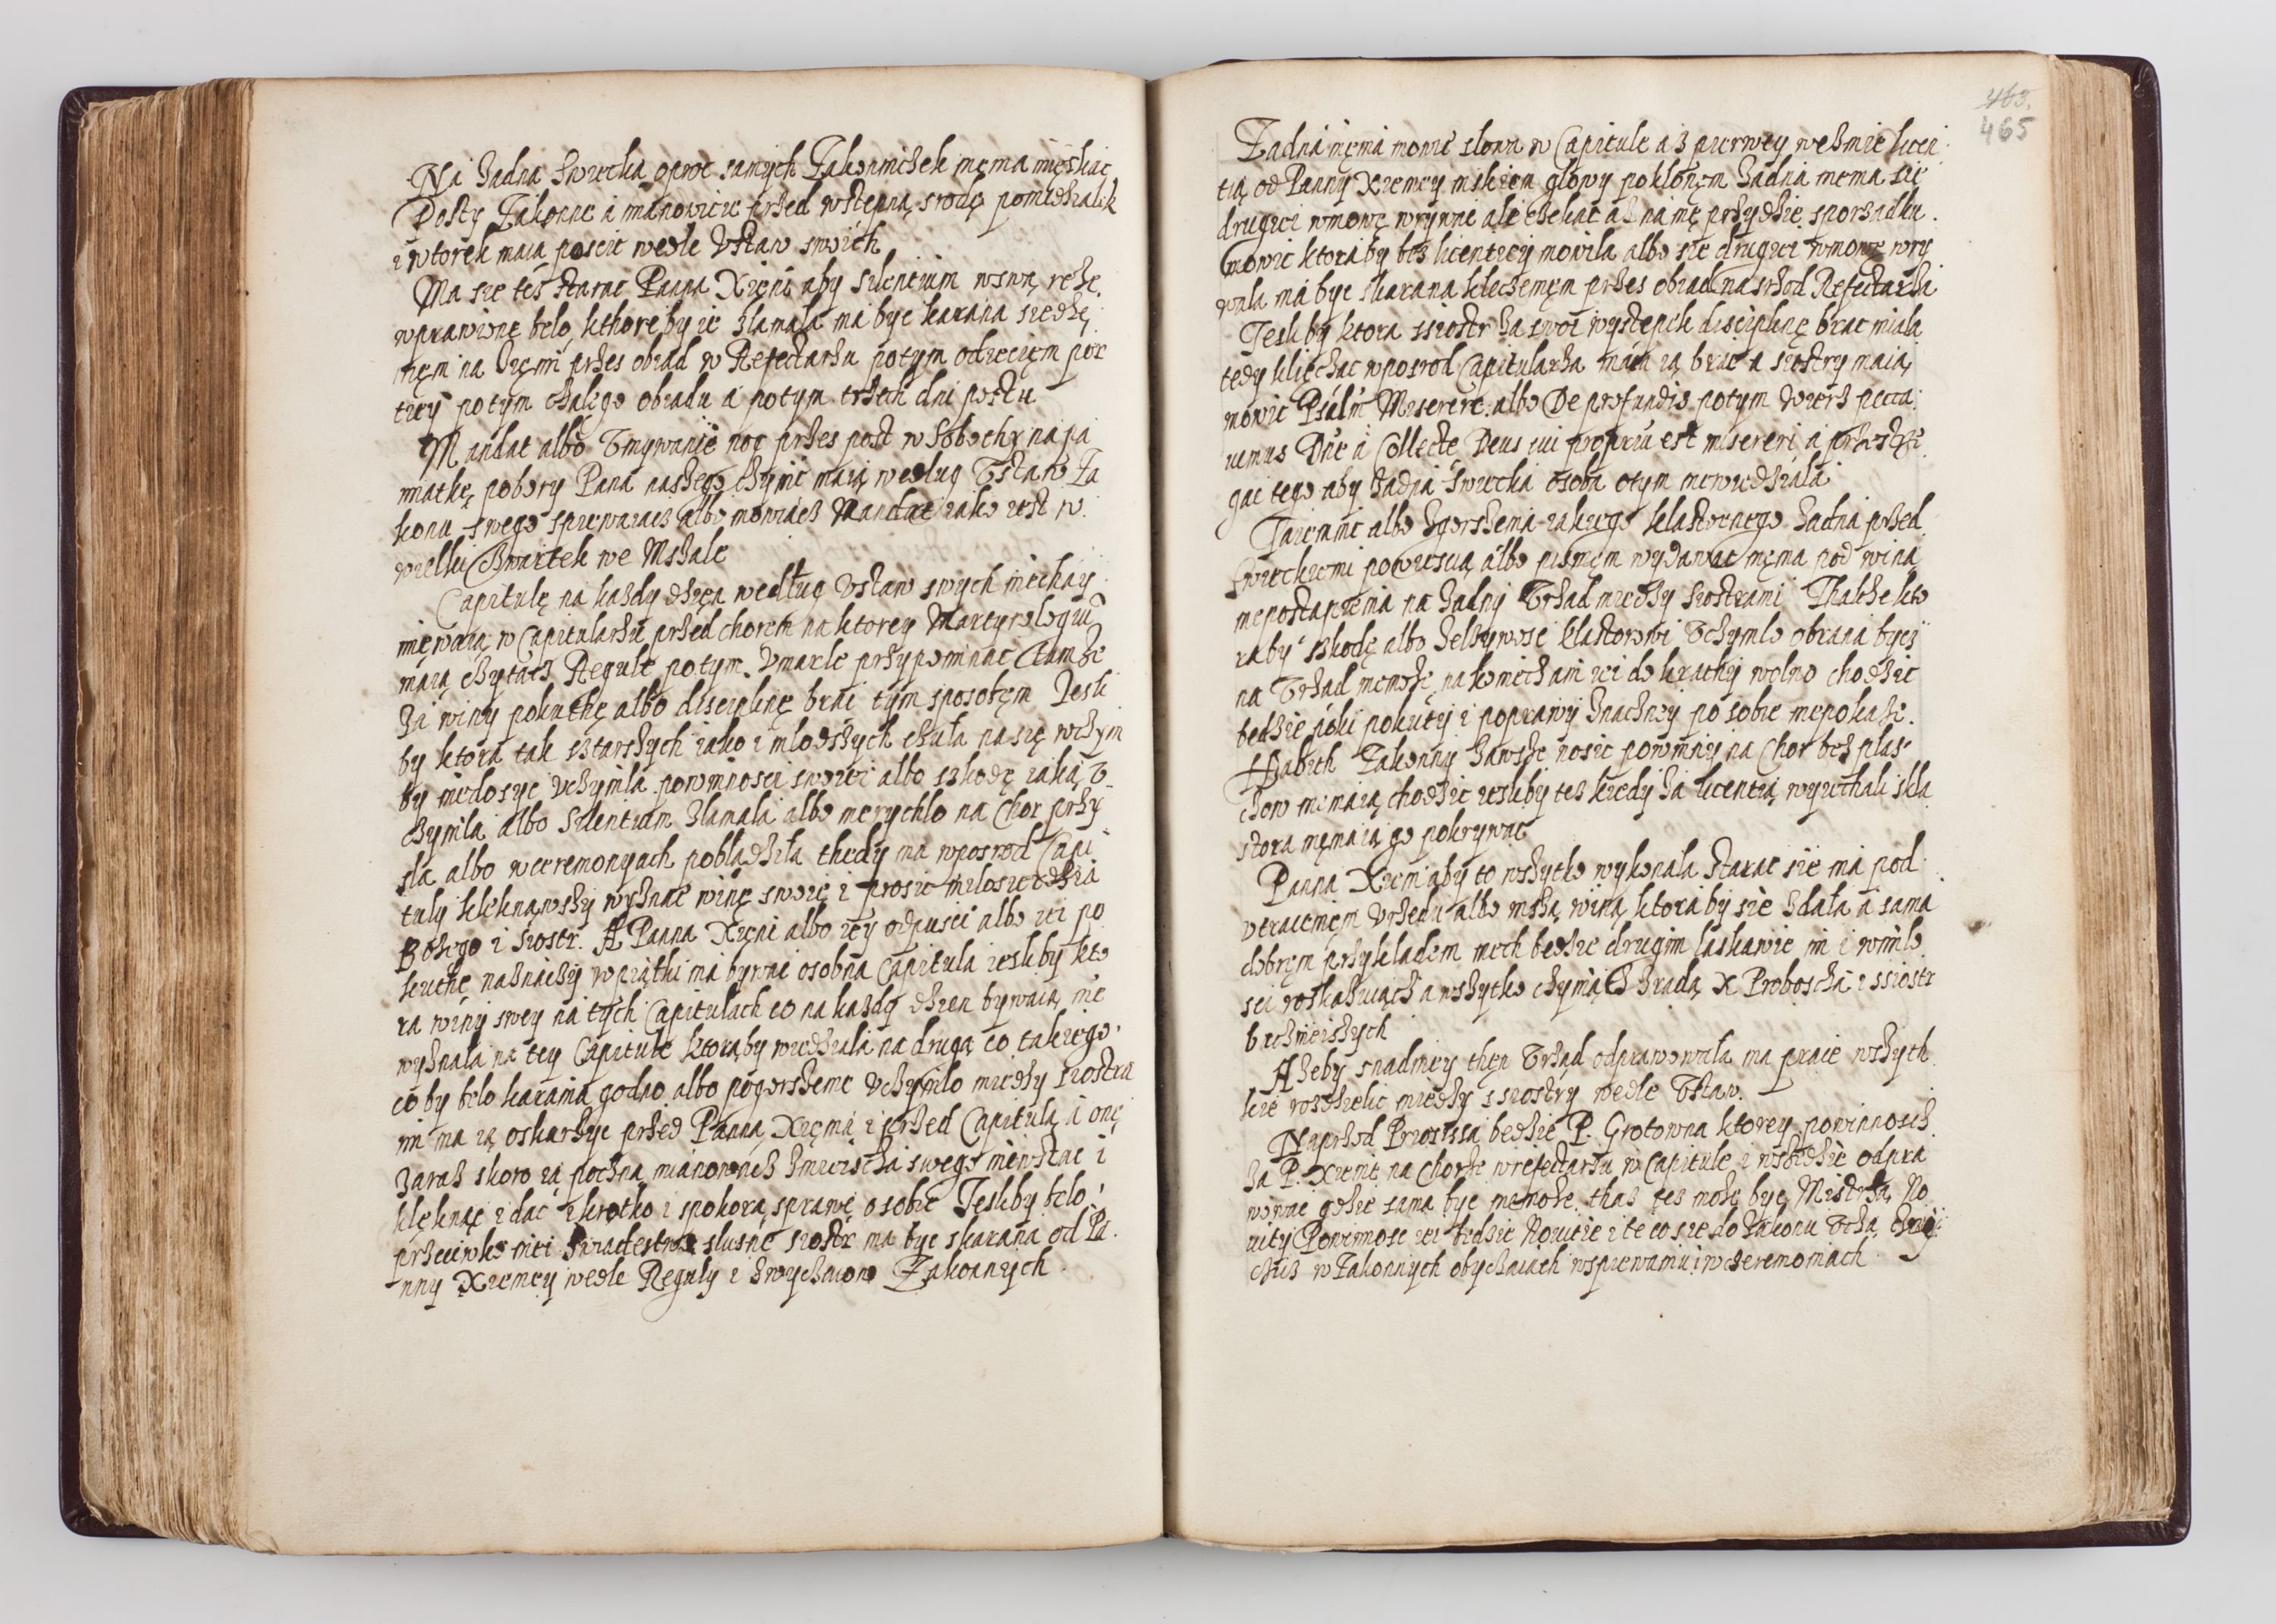 Na zadna swiecka oproc samych Zakonniczek nięma mięskac
Posty Zakonne a mianowicie przed wstępną srodę poniedzialek
i wtorek maią poscic wedle Vstaw swoich
Ma sie tés starac Panna Xięni aby silencium w swą rezę
wprawione belo, kthoreby ie złamała ma byc karana siedzę
nięm na Zięmi przes obiad w Refectarzu potym odięcięm por
tiey potym czalęgo obiadu a potym trzech dni postu
Mandat albo Vmywanie nog przes post w Sobothy na pa
miatkę pokory Pana naszego czynic maią według Vstaw Za
konu swego spiewaiacz albo mowiącz Mandat iako iest w
wielki Czwartek we Mszale
Capitulę na kazdy dzięn według Vstaw swych niechay
miewaią w Capitularzu przed chorem na ktorey Martyrologiū
maią czytacz Regule potym Vmarle przypominac tamze
Za winy pokuthę albo disciplinę brac tym sposobęm Jesli
by ktora tak sztarszych iako i mlodszych czuła na się wczym
by niedosyc Vczynila powinnosci swoiei albo szkodę iaką V
czynila albo Silentium złamala albo nierychlo na Chor przy
sla albo w ceremonyach pobladzila thedy ma wposrod Capi
tuly kleknąwszy wyznac winę swoię i prosic milosierdzia
Bozego i siostr. A Panna Xięni albo iey odpusci albo iei po
kuthę naznaczy w piątki ma bywac osobna Capitula iesliby kto
ra winy swey na tych Capitulach co na kazdy dzien bywaią nie
wyznala na tey Capitule ktoraby wiedziala na drugą co takiego
co by belo karania godno albo pogorszenie Vczynilo miedzy siostra
mi ma ią oskarzyc przed Panną Xięnią i przed Capitulą a onę
zaraz skoro ią poczną mianowacz zmieiscza swego ma wstac i
klęknąc i dac krotko i spokorą sprawę o sobie Jesliby belo
przeciwko niei swiadestwo slusne siostr ma byc skarana od Pa
nny Xieniey wedle Reguly i zwyczaiow Zakonnych
463.
465
Zadna niema mowic slowa w Capitule asz pierwey wezmie licen
tią od Panny Xieniey niskiem glowy poklonęm zadna niema sie
drugiei wmowę wrywac ale czekac asz na nię przydzie sporządku
mowic ktoraby bez licentiey mowila albo sie drugiei wmowę wry
wala ma byc skarana kleczenięm przes obiad na srzod Refectarza
Jesliby ktora ssiostr za swoi wystepek disciplinę brac miala
tedy klięczac wposrod Capitularza ma ią brac a siostry maią
mowic Psalm Miserere albo De profundis potym Wiersz pecca
uimus Dne a Collecte Deus cui propriū est misereri a przestrze
gac tego aby zadna swiecka osoba otym niewiedziala
Taiemnic albo zgorszenia iakiego klasztornego zadna przed
swieckiemi powiescią albo pismęm wydawac nięma pod winą
niepostapienia na zadny Vrzad miedzy siostrami Thakze kto
raby szkodę albo zelzywosc klastorowi Vczynila obrana bycz
na Vrzad niemoze, nakoniecz ani iei do kratky wolno chodzic
bedzie poki pokuty i poprawy znaczney po sobie niepokaze.
Habith Zakonny zawsze nosic powinny na Chor bez plas
czow niemaią chodzic iesliby tez kiedy za licentią wyiechali skla
stora niemaią go pokrywac
Panna Xieni aby to wszytko wykonala starac sie ma pod
vtracenięm Vrzedu albo inszą winą ktoraby sie zdala a sama
dobręm przykladem niech bedzie drugim laskawie mi i wmilo
sci roskazuiącz a wszytko czyniącz zradą X Proboscza i ssiostr
bacznieiszych
A zeby snadniey then Vrząd odprawowala ma prace wszyth
kie rozdzielic miedzy ssiostry wedle Vstaw.
Naprzod Priorissa bedzie P. Grotowna ktorey powinnosc
za P. Xienię na Chorze w refectarzu w Capitule i wszedzie odpra
wowac gdzie sama byc niemoze thasz tez moze byc Mistrzą No
uity Powinnosc iei bedzie Nouicie i te co sie do Zakonu Vczą cwi
czicz w Zakonnych obyczaiach wspiewaniu i w czeremoniach